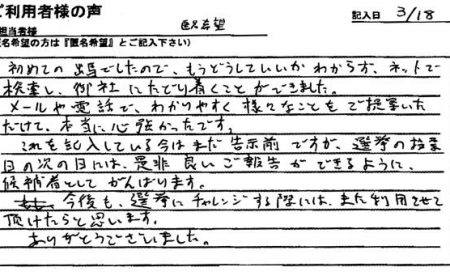 ご利用者様の声
担当者様
匿名希望
記入日 3/18
匿名希望の方は『匿名希望』とご記入下さい)
初めての出馬でしたので、もうどうしていいかわからず、ネットで
検索し、御社にたどり着くことができました。
メールや電話で、わかりやすく様々なことをご提案いた
だけて、本当に心強かったです。
これを記入している今はまだ告示前ですが、選挙の投票
日の次の日には、是非良いご報告ができるように、
候補者としてがんばります。
今後も、選挙にチャレンジする際には、また利用させて
頂けたらと思います。
ありがとうございました。